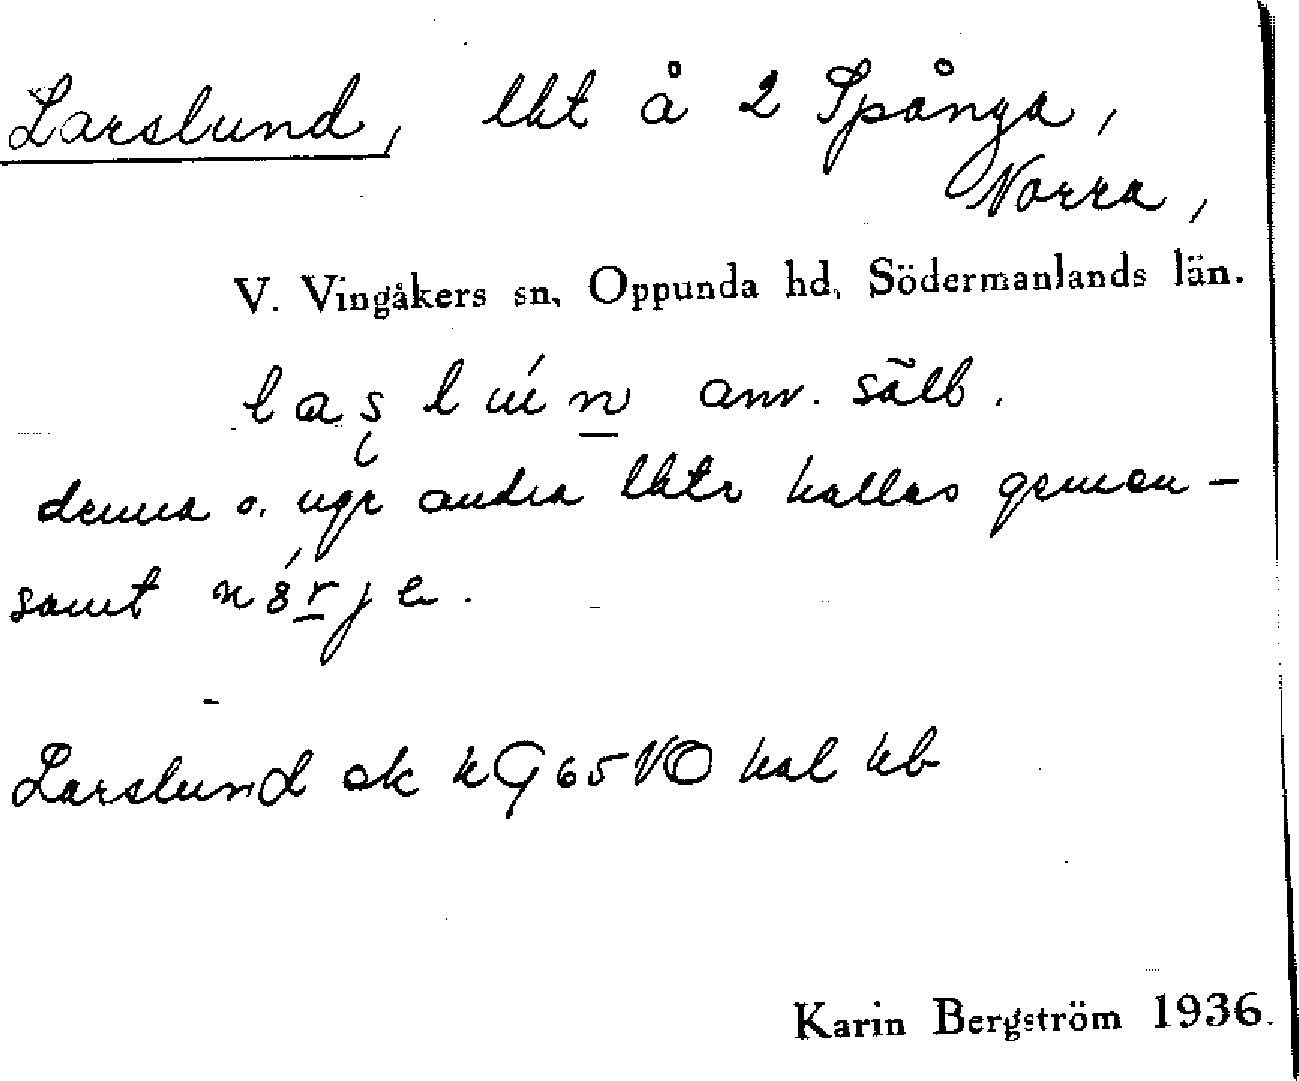 Larslund, lht å 2 Spånga,
Norra,
V. Vingåkers sn, Oppunda hd, Södermanlands län.
laslún anv. sälb.
denna o. ngr andra lhtr kallas gemen-
samt nórje.
Larslund ek kG65NO hal hb
Karin Bergström 1936.